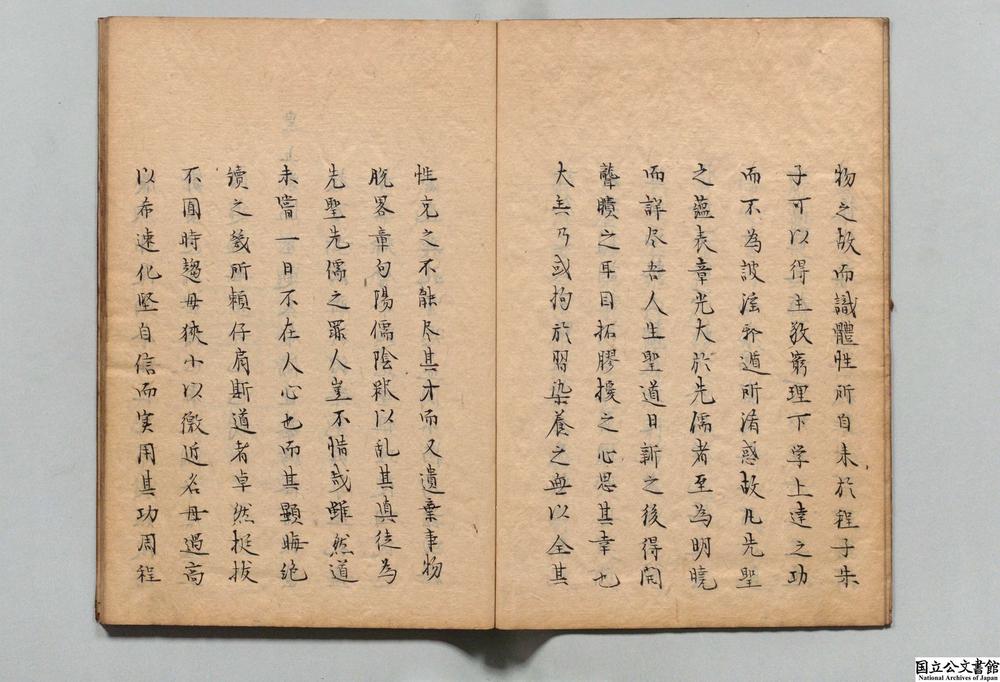 物之故而識體性所自来於程子朱
子可以得主敬窮理下学上達之功
而不為詖淫邪遁所淆惑故凡先聖
之蘊表章光大於先儒者至為明曉
而詳尽吾人生聖道日新之後得開
聾瞶之耳目拓膠擾之心思其幸也
大矣乃或拘於習染養之無以全其
性充之不能尽其才而又遺棄事物
脱畧章句陽儒陰釈以乱其真徒為
先聖先儒之罪人豈不惜哉雖然道
未嘗一日不在人心也而其顕晦绝
續之幾所頼仔肩斯道者卓然挺拔
不囿時趨毋狹小以徼近名毋過高
以希速化堅自信而実用其功周程
国立公文書館
National Archives of Japan